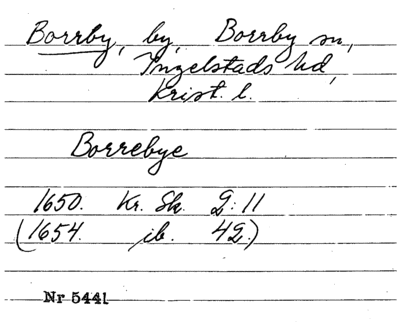 Borrby, by, Borrby sn,
Ingelstads hd,
Krist. l.
Borrebye
1650. Kr. Sk. 2:11
(1654. ib. 42.)
Nr 5441